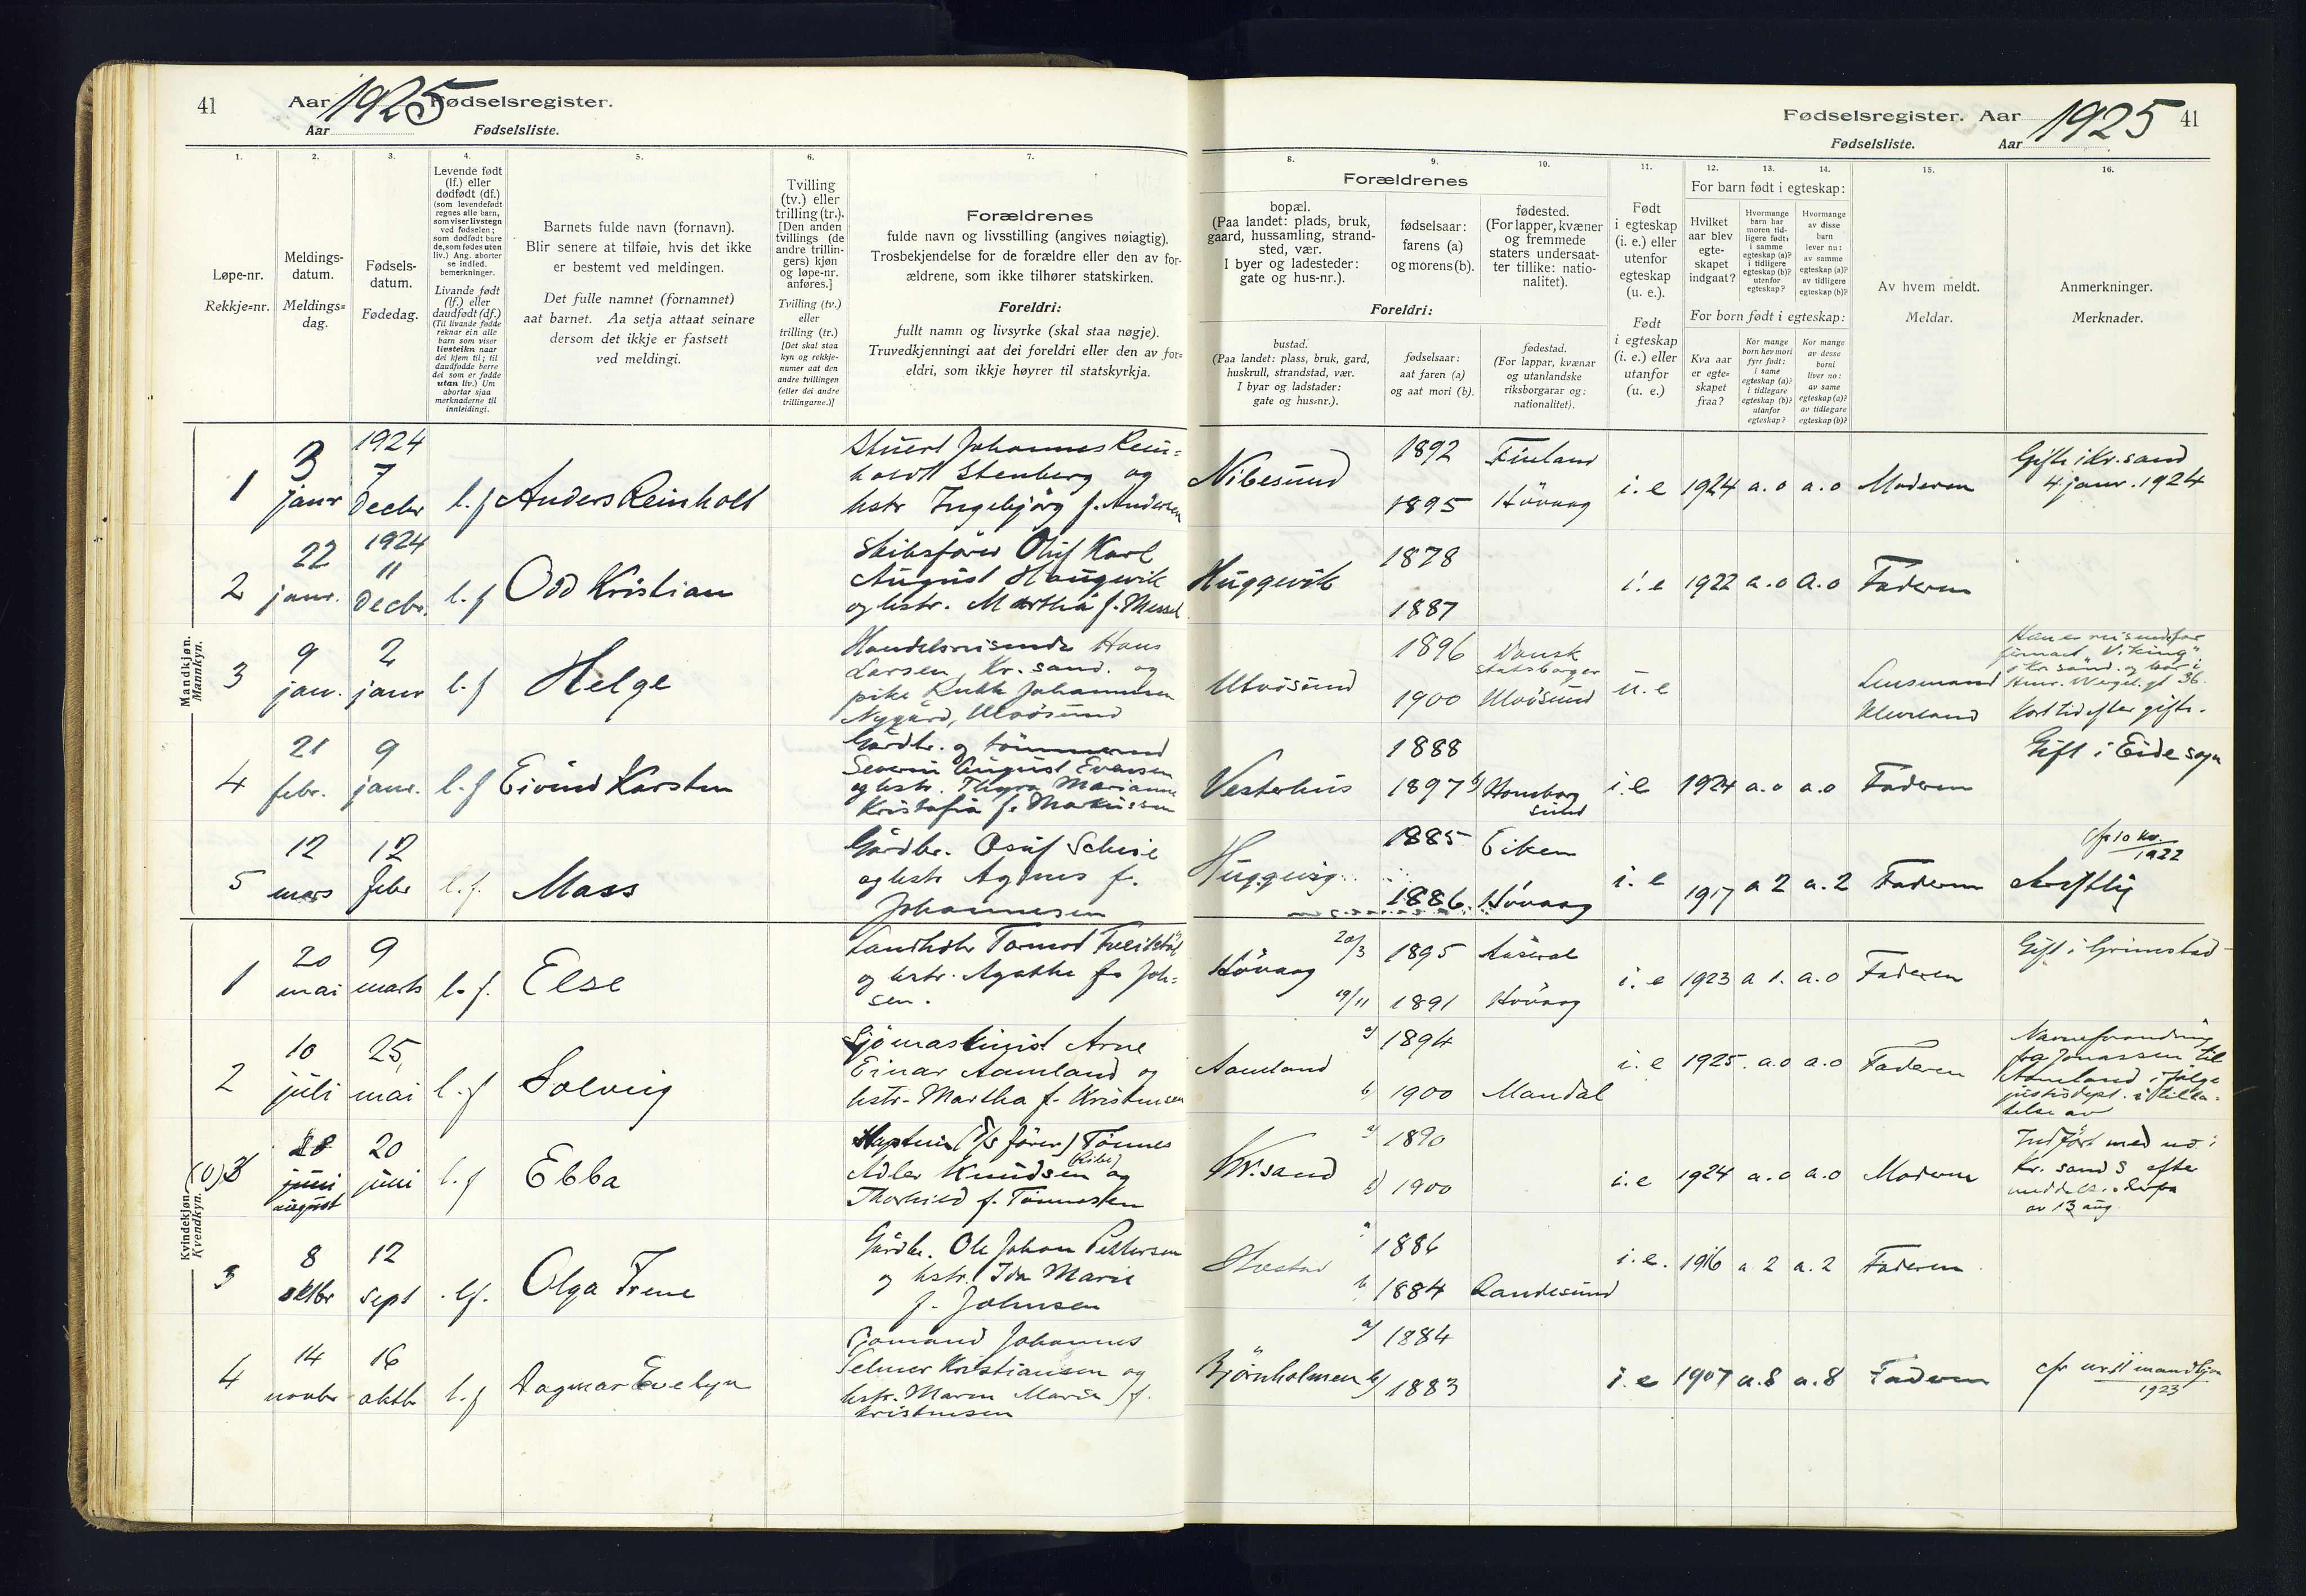 41
Aar 1925 Fødselsregister.
Aar
Fødselsliste.
1.
2.
3.
4.
5.
6.
7.
Løpe-nr.
Rekkje=nr.
Meldings-
datum.
Meldings=
dag.
Fødsels-
datum.
Fødedag.
Levende født
(lf.) eller
dødfødt (df.)
(som levendefødt
regnes alle barn,
som viser livstegn
ved fødselen;
som dødfødt bare
de, som fødes uten
liv.) Ang. aborter
se indled.
bemerkninger.
Livande født
(lf.) eller
daudfødt (df.)
(Til livande fødde
reknar ein alle
barn som viser
livsteikn naar
dei kjem til; til
daudfødde berre
dei som er fødde
utan liv.) Um
abortar sjaa
merknaderne til
innleidingi.
Barnets fulde navn (fornavn).
Blir senere at tilføie, hvis det ikke
er bestemt ved meldingen.
Det fulle namnet (fornamnet)
aat barnet. Aa setja attaat seinare
dersom det ikkje er fastsett
ved meldingi.
Tvilling
(tv.) eller
trilling (tr.).
[Den anden
tvillings (de
andre trillin-
gers) kjøn
og løpe-nr.
anføres.]
Tvilling (tv.)
eller
trilling (tr.)
[Det skal staa
kyn og rekkje-
numer aat den
andre tvillingen
(eller dei andre
trillingarne.)]
Forældrenes
fulde navn og livsstilling (angives nøiagtig).
Trosbekjendelse for de forældre eller den av for-
ældrene, som ikke tilhører statskirken.
Foreldri:
fullt namn og livsyrke (skal staa nøgje).
Truvedkjenningi aat dei foreldri eller den av for=
eldri, som ikkje høyrer til statskyrkja.
Fødselsregister. Aar 1925 41
Fødselsliste. Aar
8.
9.
10.
11.
12.
13.
14.
15.
16.
Forældrenes
bopæl.
(Paa landet: plads, bruk,
gaard, hussamling, strand-
sted, vær.
I byer og ladesteder:
gate og hus-nr.).
fødselsaar:
farens (a)
og morens (b).
fødested.
(For lapper, kvæner
og fremmede
staters undersaat-
ter tillike: natio-
nalitet).
Foreldri:
bustad.
(Paa landet: plass, bruk, gard,
huskrull, strandstad, vær.
I byar og ladstader:
gate og hus=nr.).
fødselsaar:
aat faren (a)
og aat mori (b).
fødestad.
(For lappar, kvænar
og utanlandske
riksborgarar og:
nationalitet).
Født
i egteskap
(i. e.) eller
utenfor
egteskap
(u. e.).
Født
i egteskap
(i. e.) eller
utanfor
(u. e.)
For barn født i egteskap:
Hvilket
aar blev
egte-
skapet
indgaat?
Hvormange
barn har
moren tid-
ligere født:
i samme
egteskap (a)?
i tidligere
egteskap (b)?
utenfor
egteskap?
Hvormange
av disse
barn
lever nu:
av samme
egteskap (a)?
av tidligere
egteskap (b)?
For born født i egteskap:
Kva aar
er egte=
skapet
fraa?
Kor mange
born hev mori
fyrr født:
i same
egteskap (a)?
i tidlegare
egteskap (b)?
utanfor
egteskap?
Kor mange
av desse
borni
liver no:
av same
egteskap (a)?
av tidlegare
egteskap (b)?
Av hvem meldt.
Meldar.
Anmerkninger.
Merknader.
Mandkjøn.
Mannkyn.
1 3 janr 1924 7 decbr l.f Anders Reinholt
Stuert Johannes Rein=
holdt Stenberg og
hstr Ingebjörg f. Andersen
Nibesund 1892 Finland
1895 Hövaag
i.e 1924 a.o a.o Moderen
Gift i Kr.sand
4 janr. 1924
2 22 janr. 1924 11 decbr. l.f Odd Kristian
Skibsförer Oluf Karl
August Haugevik
og hstr. Martha f. Messel
Huggevik 1878
1887
i.e 1922 a.o a.o Faderen
3 9 jan. 2 janr l.f Helge
Handelsreisende Hans
Larsen, Kr.sand. og
pike Ruth Johannesen
Nygård, Ulvösund
Ulvösund 1896 Dansk
statsborger
1900 Ulvösund
u.e
Lensmand
Kleveland
Han er reisende for
firmaet "Viking"
i Kr.sand. og bor i
Henr. Wergel. gt 36.
Kort tid efter gifte.
4 21 febr. 9 janr. l.f Eivind Karsten
Gårdbr. og tömmermd
Severin August Evensen
og hstr. Thyra Marianne
Kristofia f. Markussen
Vesterhus 1888
1897 b) Homborg
sund
i.e 1924 a.o a.o Faderen
Gift i Eide sogn
5 12 mars 12 febr l.f. Mass
Gårdbr. Osuf Scheie
og hstr Agnes f.
Johannesen
Huggevig 1885 Eiken
1886 Hövaag
i.e 1917 a 2 a.2 Faderen
cfr 10 kv.
1922
Kvindekjøn.
Kvendkyn.
1 20 mai 9 marts l.f. Else
Landhdlr Tormod
og hstr. Agathe f. Joh=
sen.
Hövaag 20/3 1895 Aaseral
19/11 1891 Hövaag
i.e 1923 a 1. a.o Faderen
Gift i Grimstad
2 10 juli 25 mai l.f Solveig
Sjömaskinist Arne
Einar Aamland og
hstr. Martha f. Kristensen
Aamland a) 1894
b) 1900 Mandal
i.e 1925. a.o a.o Faderen
Navneforandring
fra Jonassen til
Aamland ifölge
justisdept. tilla=
telse av
(0) 3 28 juni august 20 juni l.f Ebba
Kaptein (S/S förer) Tönnes
Adler Knudsen (Ribe) og
Thorhild f. Tönnesen
Kr.sand a) 1890
b) 1900
i.e 1924 a.o a.o Moderen
Indfört med no i
Kr. sand S efter
meddelelse derfra
av 13 aug.
3 8 oktbr 12 sept. lf. Olga Irene
Gårdbr. Ole Johan Pettersen
og hstr. Ida Marie
f. Johnsen
a) 1886
b) 1884 Randesund
i.e. 1916 a 2 a.2 Faderen
4 14 novbr 16 oktbr l.f Dagmar Evelyn
Sjömand Johannes
Selmer Kristiansen og
hstr. Maren Marie f.
Kristensen
Bjørnholmen a) 1884
b) 1883
i.e 1907 a.8 a.8 Faderen
cfr nr. 11 mandkjøn
1923